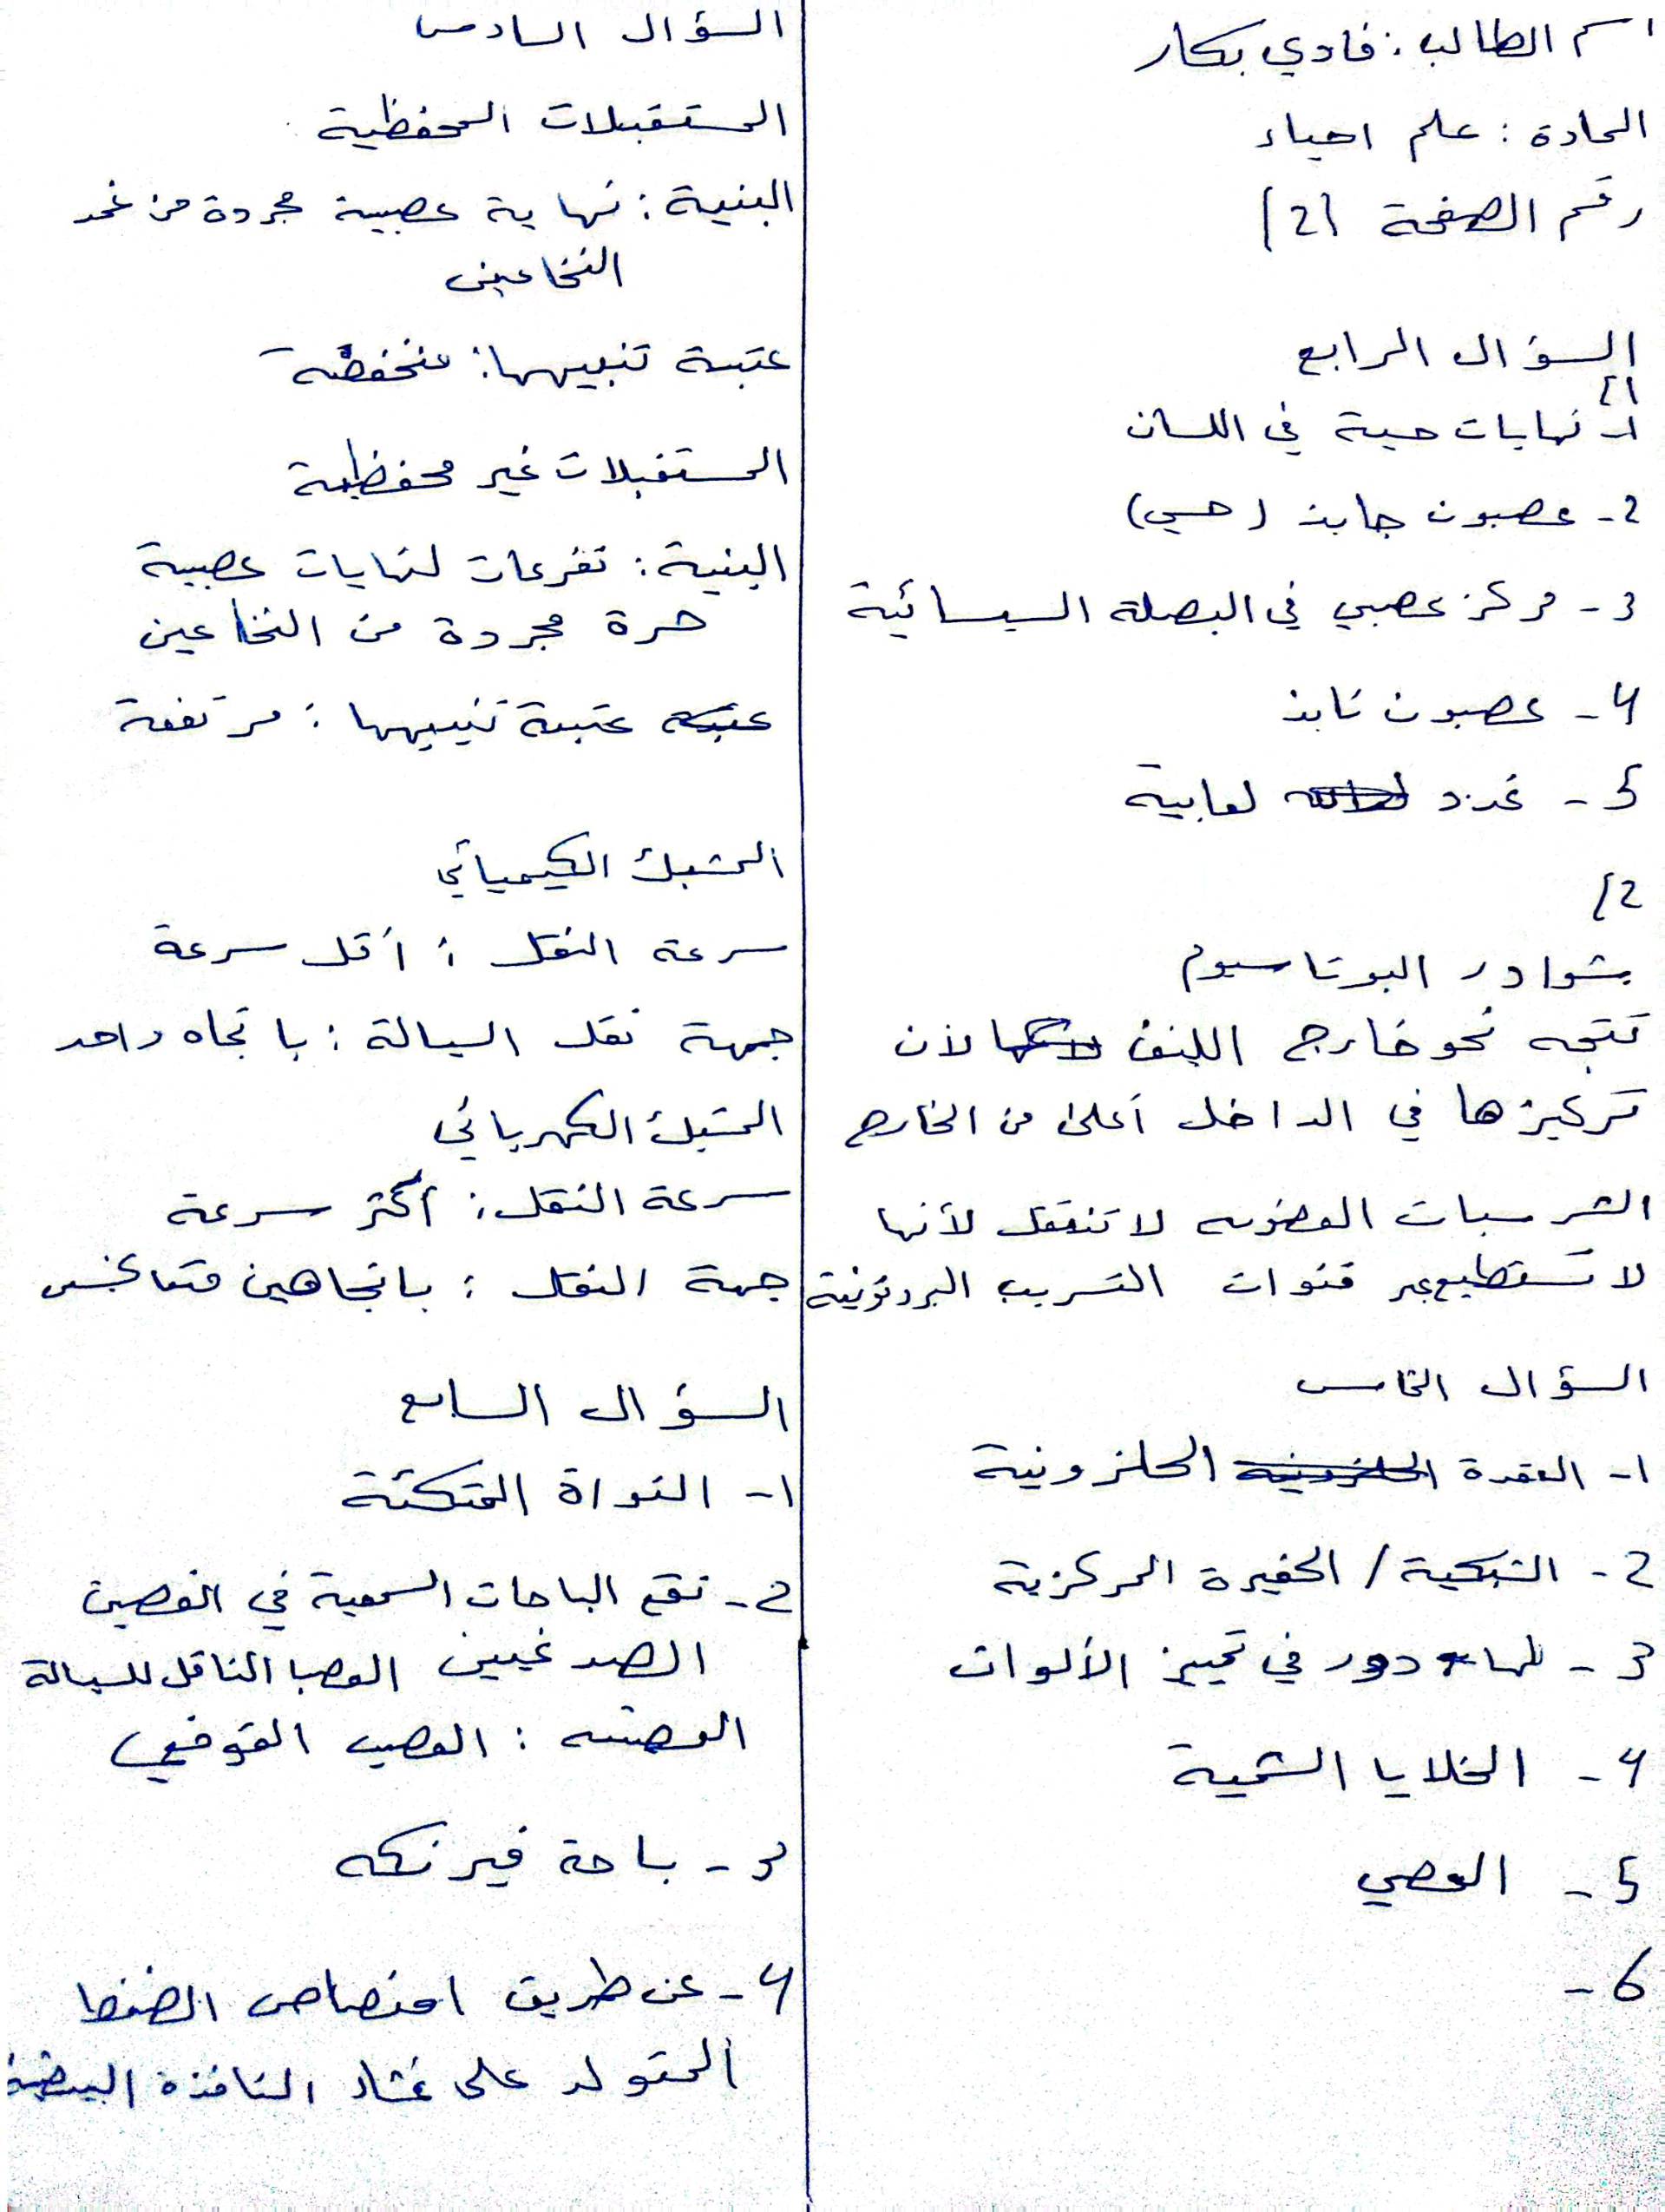 اسم الطالب: فادي بكار
المادة: علم احياء
رقم الصفحة (2)
السؤال الرابع
1)
1- نهايات حسية في اللسان
2- عصبون جابذ (حسي)
3- مركز عصبي في البصلة السيسائية
4- عصبون نابذ
5- غدد لعابية
2)
شوادر البوتاسيوم
تتجه نحو خارج الليف لأن
تركيزها في الداخل أعلى من الخارج
الشرسبات العضوية لا تنتقل لأنها
لا تستطيع عبر قنوات التسريب البروتونية
السؤال الخامس
1- العقدة الحلزونية
2- الشبكية / الحفيرة المركزية
3- لها دور في تمييز الألوان
4- الخلايا الشمية
5- العصي
6-
السؤال السادس
المستقبلات المحفظية
البنية: نهاية عصبية مجردة من غمد
النخاعين
عتبة تنبيهها: منخفضة
المستقبلات غير محفظية
البنية: تفرعات لنهايات عصبية
حرة مجردة من النخاعين
عتبة عتبة تنبيهها: مرتفعة
المشبك الكيميائي
سرعة النقل: أقل سرعة
جهة نقل السيالة: باتجاه واحد
المشبك الكهربائي
سرعة النقل: أكثر سرعة
جهة النقل: باتجاهين متعاكس
السؤال السابع
1- النواة المتكئة
2- تقع الباحات السمعية في الفصين
الصدغيين العصب الناقل للسيالة
العصبية: العصب القوقعي
3- باحة فيرنكه
4- عن طريق امتصاص الضغط
المتولد على غشاء النافذة البيضية